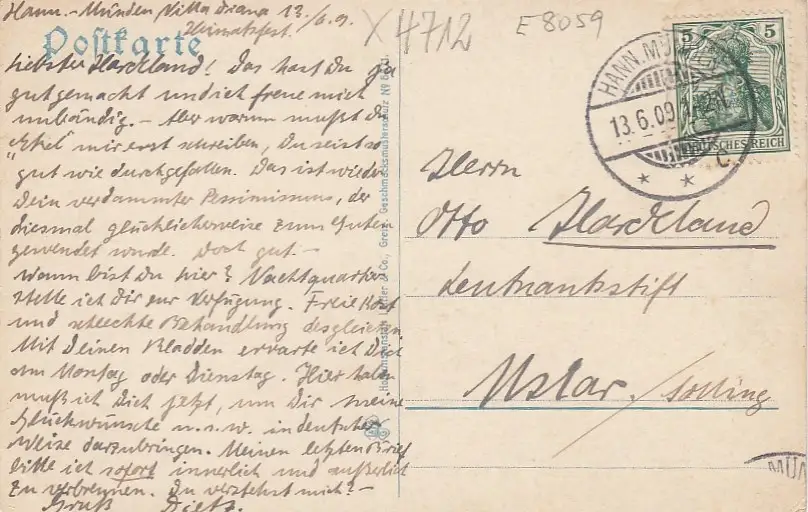 Hann.-Münden Villa Diana 13./6.9.
Heimatfest.
Postkarte
X 4712
E 8059
Liebster Harckland! Das hast Du ja
gut gemacht und ich freue mich
unbändig. – Aber warum mußt Du
"Ekel" mir erst schreiben, Du seist so
gut wie durchgefallen. Das ist wieder
Dein verdammter Pessimismus, der
diesmal glücklicherweise zum Guten
gewendet wurde. Doch gut –
Wann bist Du hier? Nachtquartier
stelle ich Dir zur Verfügung. Freie Kost
und schlechte Behandlung desgleichen
Mit Deinen Bladden erwarte ich Dich
am Montag oder Dienstag. Hier haben
muß ich Dich jetzt, um Dir meine
Glückwünsche u.s.w. in deutscher
Weise darzubringen. Meinen letzten Brief
bitte ich sofort innerlich und äußerlich
zu verbrennen. Du verstehst mich? –
Gruß Dietz.
& Co., Greiz. Geschmacksmusterschutz No
HANN. MÜNDEN
13.6.09
5 5
DEUTSCHES REICH
Herrn
Otto Harckland
Lentrantstift
Uslar/Solling
MÜN